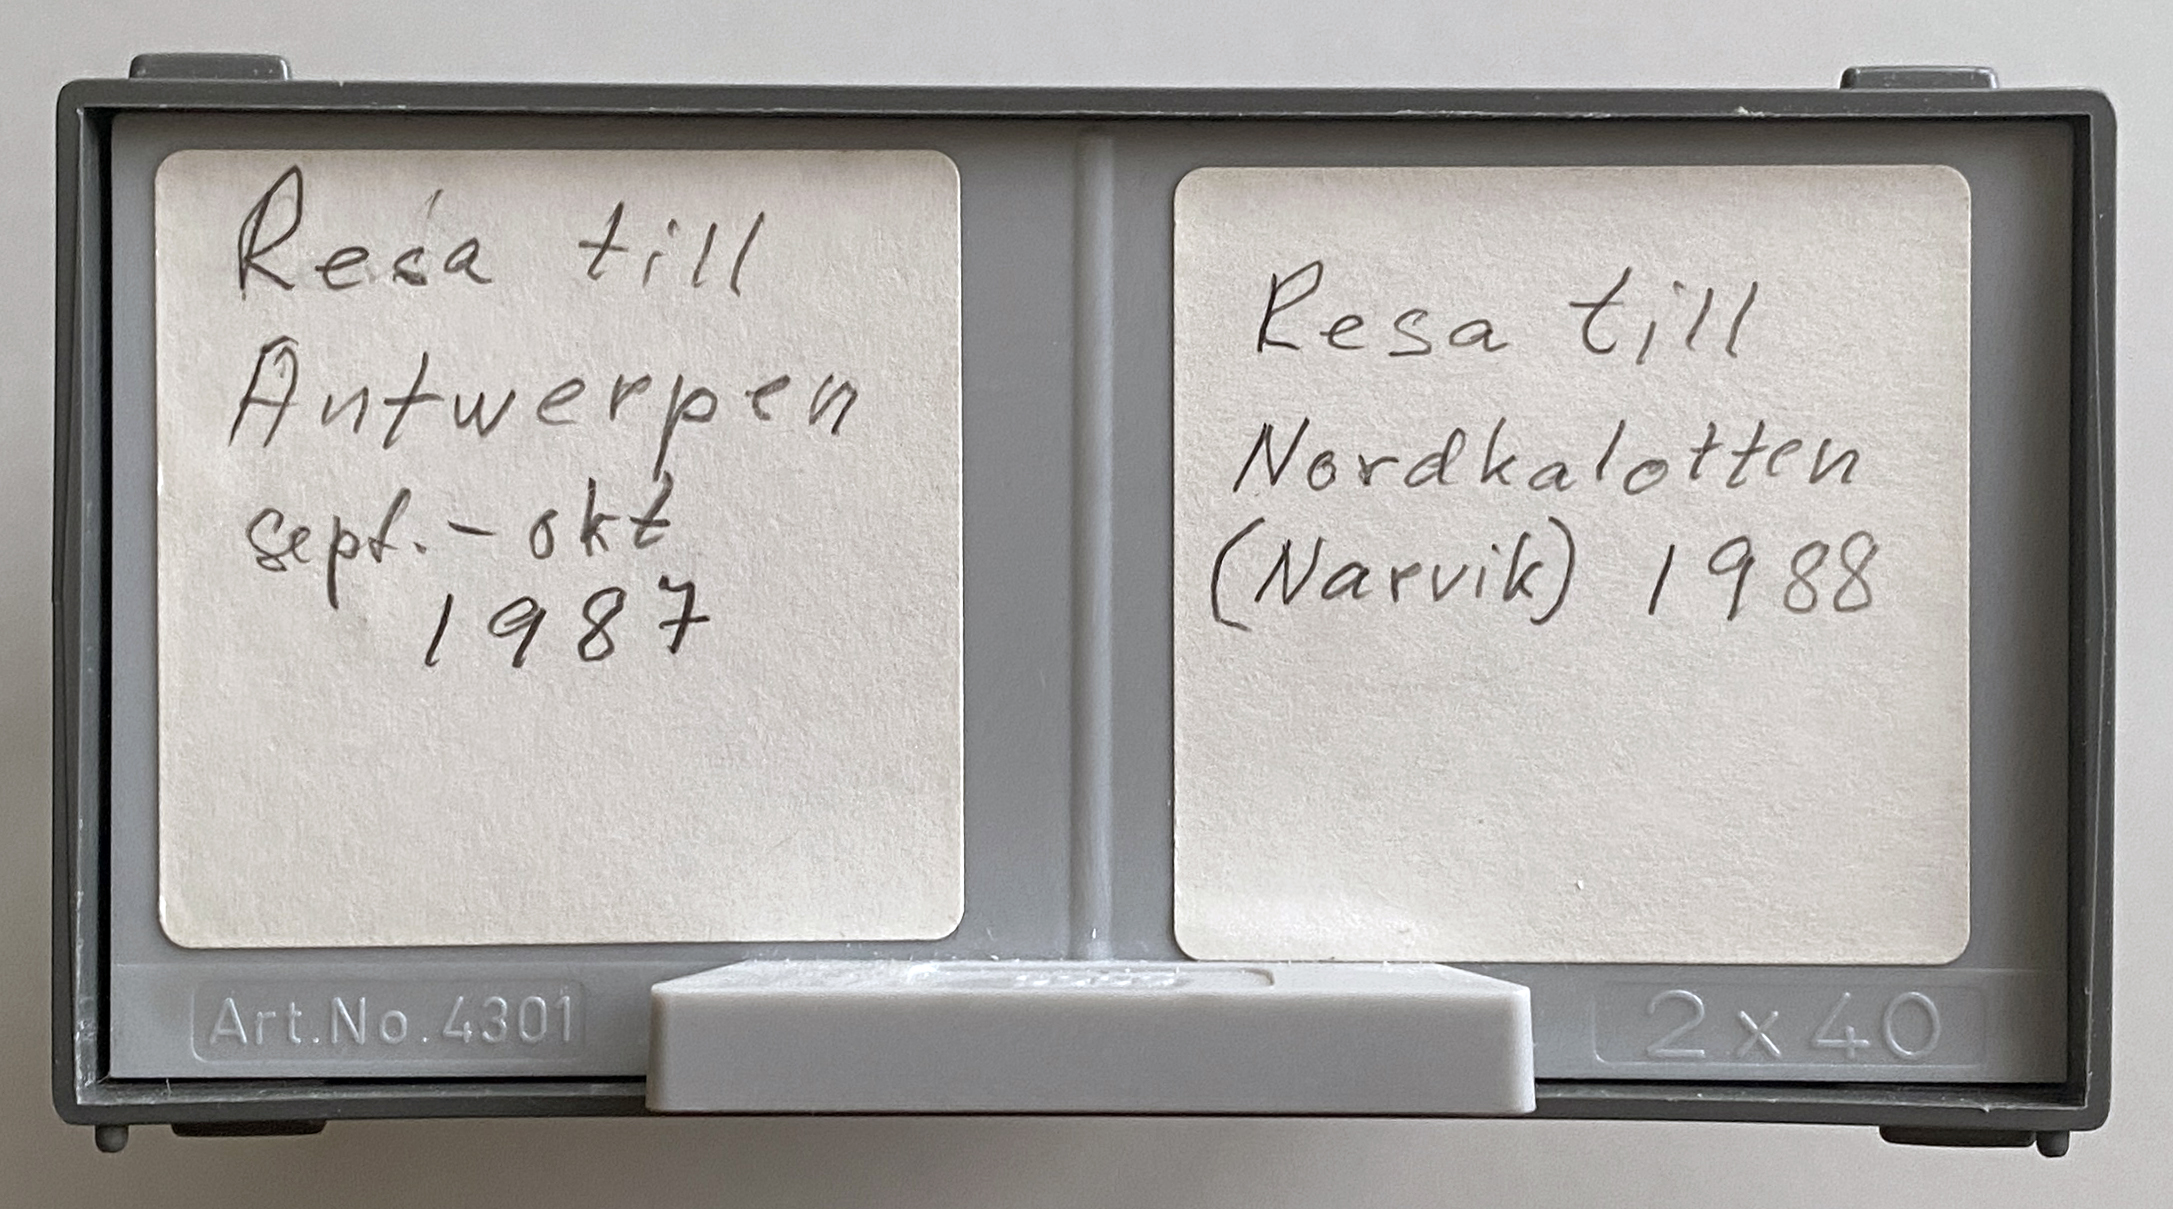 Resa till
Antwerpen
sept. - okt
1987
Resa till
Nordkalotten
(Narvik) 1988
Art.No.4301
2x40